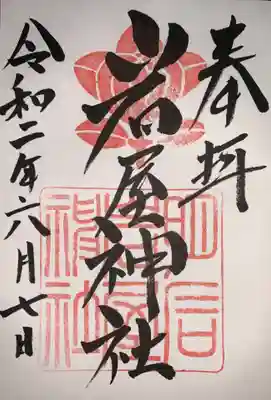 奉拝
岩屋神社
令和二年六月七日